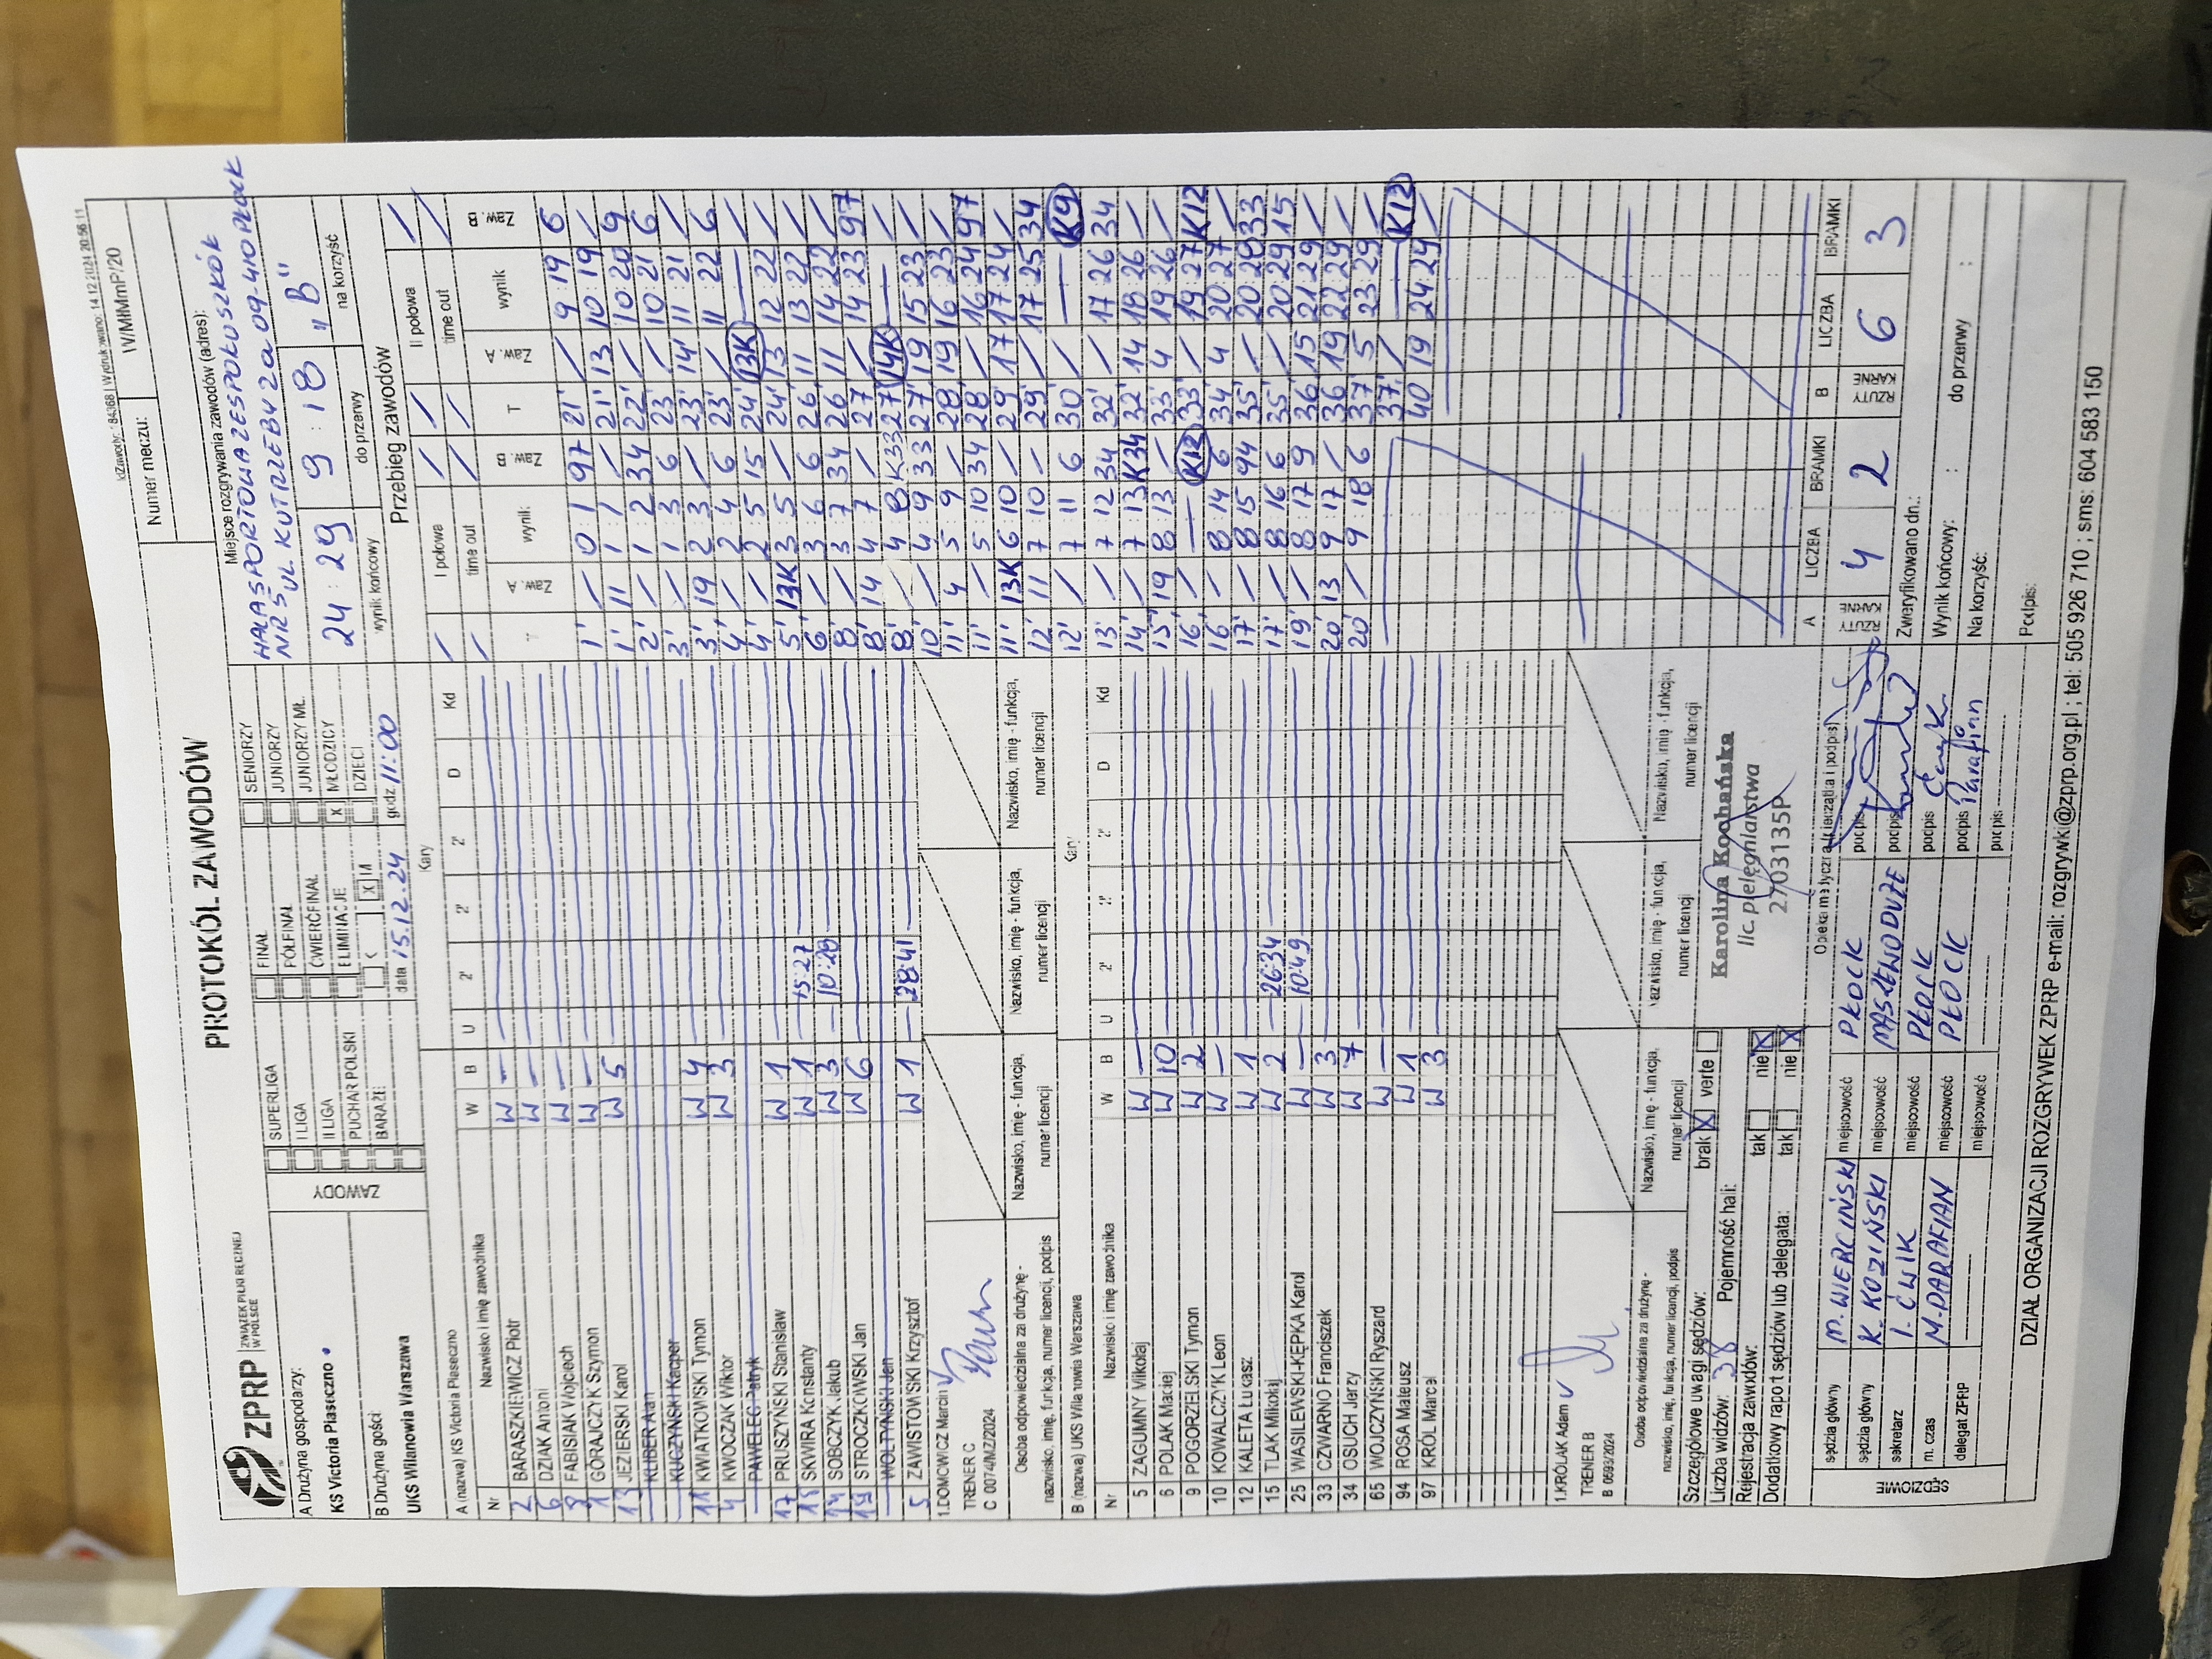 IdZawody: 84368 | Wydrukowano: 14.12.2024 20:56:11
ZPRP ZWIĄZEK PIŁKI RĘCZNEJ W POLSCE
PROTOKÓŁ ZAWODÓW
Numer meczu: IV/MłMmP/20
A Drużyna gospodarzy:
KS Victoria Piaseczno
B Drużyna gości:
UKS Wilanowia Warszawa
ZAWODY
SUPERLIGA
I LIGA
II LIGA
PUCHAR POLSKI
BARAŻE
FINAŁ
PÓŁFINAŁ
ĆWIERĆFINAŁ
ELIMINACJE
K X M
SENIORZY
JUNIORZY
JUNIORZY MŁ.
X MŁODZICY
DZIECI
data 15.12.24 godz. 11:00
Miejsce rozgrywania zawodów (adres):
HALA SPORTOWA ZESPOŁU SZKÓŁ
NR 5 UL. KUTRZEBY 2a 09-410 PŁOCK
24 : 29 9 : 18 "B"
wynik końcowy do przerwy na korzyść
A (nazwa) KS Victoria Piaseczno Kary
Nr Nazwisko i imię zawodnika W B U 2' 2' 2' D Kd
2 BARASZKIEWICZ Piotr W —
6 DZIAK Antoni W —
8 FABISIAK Wojciech W —
1 GÓRAJCZYK Szymon W —
13 JEZIERSKI Karol W 5
KLIBER Alan
KUCZYŃSKI Kacper
11 KWIATKOWSKI Tymon W 4
4 KWOCZAK Wiktor W 3
PAWELEC Patryk
17 PRUSZYŃSKI Stanisław W 1
15 SKWIRA Konstanty W 1 15:27
14 SOBCZYK Jakub W 3 10:28
19 STROCZKOWSKI Jan W 6
WOŁTYŃSKI Jan
5 ZAWISTOWSKI Krzysztof W 1 28:41
1.DOMOWICZ Marcin
TRENER C
C 0074/MZ/2024
Osoba odpowiedzialna za drużynę -
nazwisko, imię, funkcja, numer licencji, podpis
Nazwisko, imię - funkcja, numer licencji
Nazwisko, imię - funkcja, numer licencji
Nazwisko, imię - funkcja, numer licencji
B (nazwa) UKS Wilanowia Warszawa Kary
Nr Nazwisko i imię zawodnika W B U 2' 2' 2' D Kd
5 ZAGUMNY Mikołaj W —
6 POLAK Maciej W 10
9 POGORZELSKI Tymon W 2
10 KOWALCZYK Leon W —
12 KALETA Łukasz W 1
15 TLAK Mikołaj W 2 26:34
25 WASILEWSKI-KĘPKA Karol W — 10:49
33 CZWARNO Franciszek W 3
34 OSUCH Jerzy W 7
65 WOJCZYŃSKI Ryszard W —
94 ROSA Mateusz W 1
97 KRÓL Marcel W 3
1.KRÓLAK Adam
TRENER B
B 0593/2024
Osoba odpowiedzialna za drużynę -
nazwisko, imię, funkcja, numer licencji, podpis
Nazwisko, imię - funkcja, numer licencji
Nazwisko, imię - funkcja, numer licencji
Nazwisko, imię - funkcja, numer licencji
Szczegółowe uwagi sędziów: brak X verte
Liczba widzów: 38 Pojemność hali:
Rejestracja zawodów: tak nie X
Dodatkowy raport sędziów lub delegata: tak nie X
Karolina Kochańska
lic. pielęgniarstwa
2703135P
Opieka medyczna (pieczątka i podpis)
SĘDZIOWIE
sędzia główny M. WIERCIŃSKI miejscowość PŁOCK podpis
sędzia główny K. KOZIŃSKI miejscowość MASZEWO DUŻE podpis
sekretarz I. ĆWIK miejscowość PŁOCK podpis Ćwik
m. czas M. PARAFIAN miejscowość PŁOCK podpis Parafian
delegat ZPRP miejscowość podpis
Przebieg zawodów
I połowa II połowa
time out time out
T Zaw. A wynik Zaw. B T Zaw. A wynik Zaw. B
1' / 0 : 1 97 21' / 9 19 6
1' 11 1 : 1 / 21' 13 10 : 19 /
2' / 1 : 2 34 22' / 10 : 20 9
3' / 1 : 3 6 23' / 10 : 21 6
3' 19 2 : 3 / 23' 14 11 : 21 /
4' / 2 : 4 6 23' / 11 : 22 6
4' / 2 : 5 15 24' 13K — /
5' 13K 3 : 5 / 24' 13 12 : 22 /
6' / 3 : 6 6 26' 11 13 : 22 /
8' / 3 : 7 34 26' 11 14 : 22 /
8' 14 4 : 7 / 27' / 14 : 23 97
8' / 4 : 8 K33 27' 14K — /
10' / 4 : 9 33 27' 19 15 : 23 /
11' 4 5 : 9 / 28' 19 16 : 23 /
11' / 5 : 10 34 28' / 16 : 24 97
11' 13K 6 : 10 / 29' 17 17 : 24 /
12' 11 7 : 10 / 29' / 17 : 25 34
12' / 7 : 11 6 30' / — K9
13' / 7 : 12 34 32' / 17 : 26 34
14' / 7 : 13 K34 32' 14 18 : 26 /
15' 19 8 : 13 / 33' 4 19 : 26 /
16' / — K12 33' / 19 : 27 K12
16' / 8 : 14 6 34' 4 20 : 27 /
17' / 8 : 15 94 35' / 20 : 28 33
17' / 8 : 16 6 35' / 20 : 29 15
19' / 8 : 17 9 36' 15 21 : 29 /
20' 13 9 : 17 / 36' 19 22 : 29 /
20' / 9 : 18 6 37' 5 23 : 29 /
37' / — K12
40 19 24 : 29 /
A RZUTY KARNE LICZBA 4 BRAMKI 2
B RZUTY KARNE LICZBA 6 BRAMKI 3
Zweryfikowano dn.:
Wynik końcowy: : do przerwy :
Na korzyść:
Podpis:
DZIAŁ ORGANIZACJI ROZGRYWEK ZPRP e-mail: rozgrywki@zprp.org.pl ; tel: 505 926 710 ; sms: 604 583 150